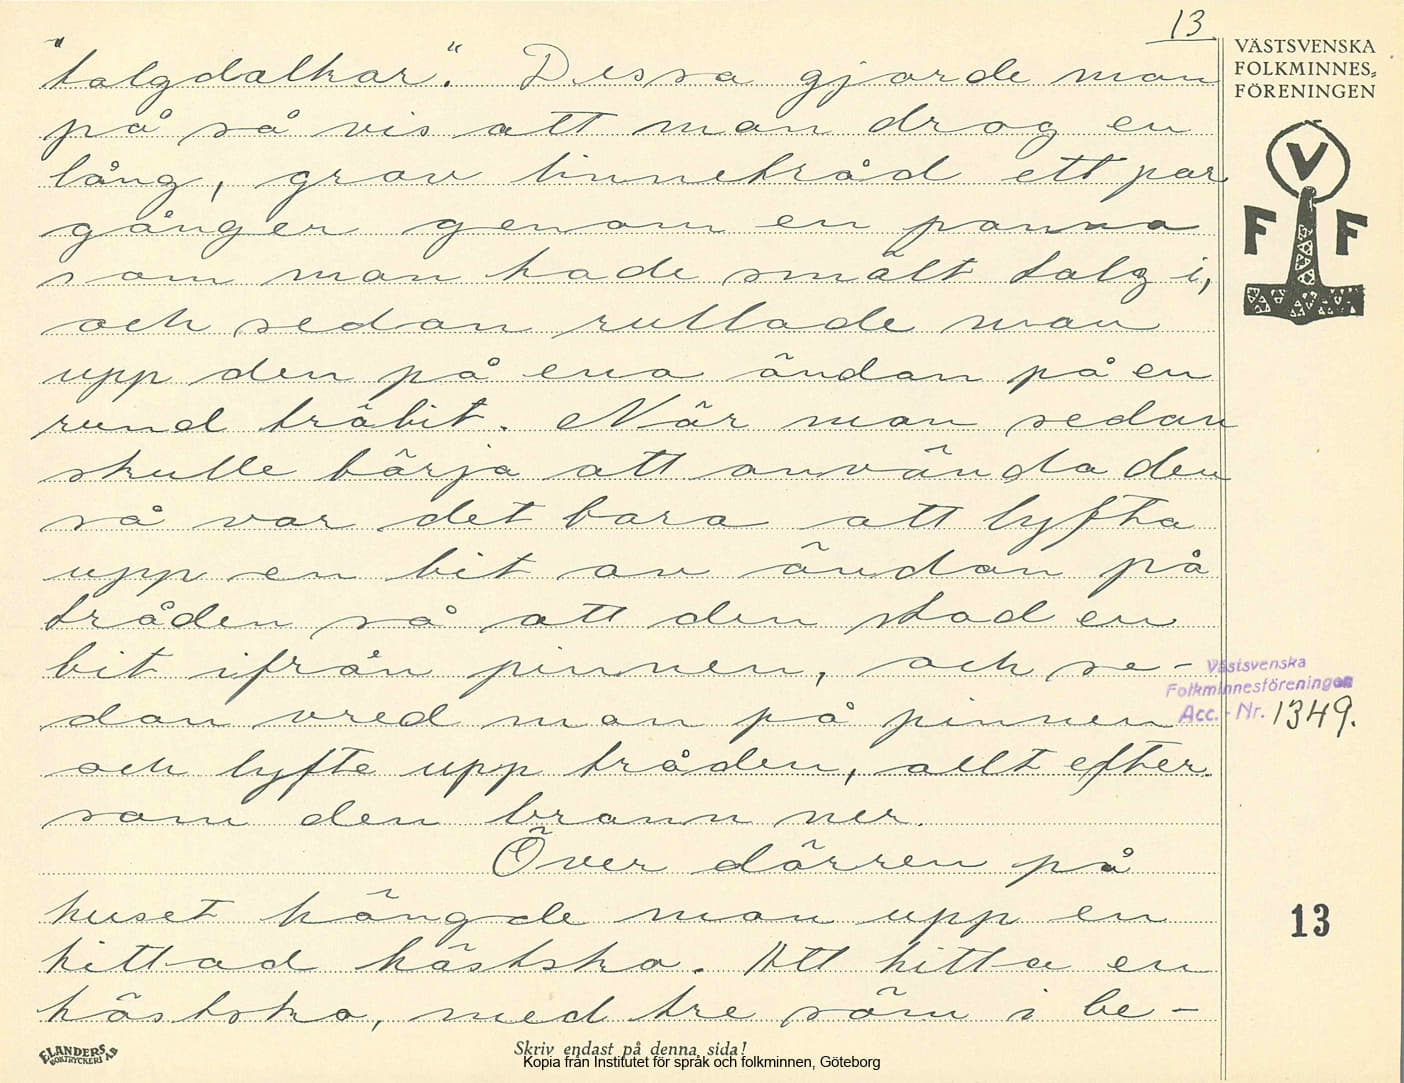 13
VÄSTSVENSKA
FOLKMINNES=
FÖRENINGEN
V
F F
"talgdalkar". Dessa gjorde man
på så vis att man drog en
lång, grov linnetråd ett par
gånger genom en panna
som man hade smält talg i,
och sedan rullade man
upp den på ena ändan på en
rund träbit. När man sedan
skulle börja att använda den
så var det bara att lyfta
upp en bit av ändan på
tråden så att den stod en
bit ifrån pinnen, och se-
dan vred man på pinnen
och lyfte upp tråden, allt efter
som den brann ner.
Över dörren på
huset hängde man upp en
hittad hästsko. Att hitta en
hästsko, med tre söm i be-
Västsvenska
Folkminnesföreningen
Acc. - Nr. 1349.
13
ELANDERS
BOKTRYCKERI AB
Skriv endast på denna sida!
Kopia från Institutet för språk och folkminnen, Göteborg